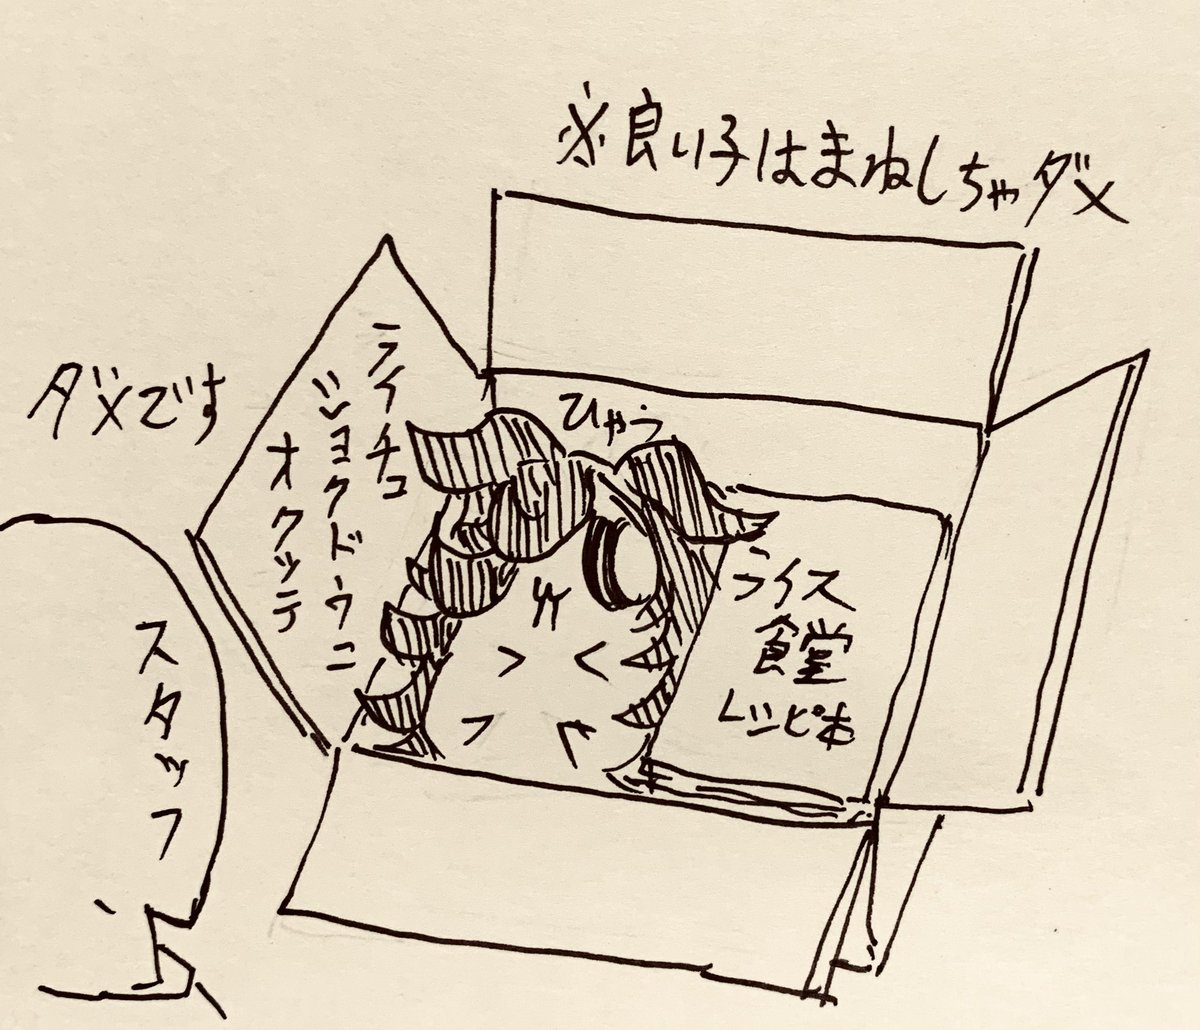 ※良い子はまねしちゃダメ
ダメです
ライチョ
ショクドウニ
オクッテ
ひゃう
ライス
食堂
レシピ本
スタッフ